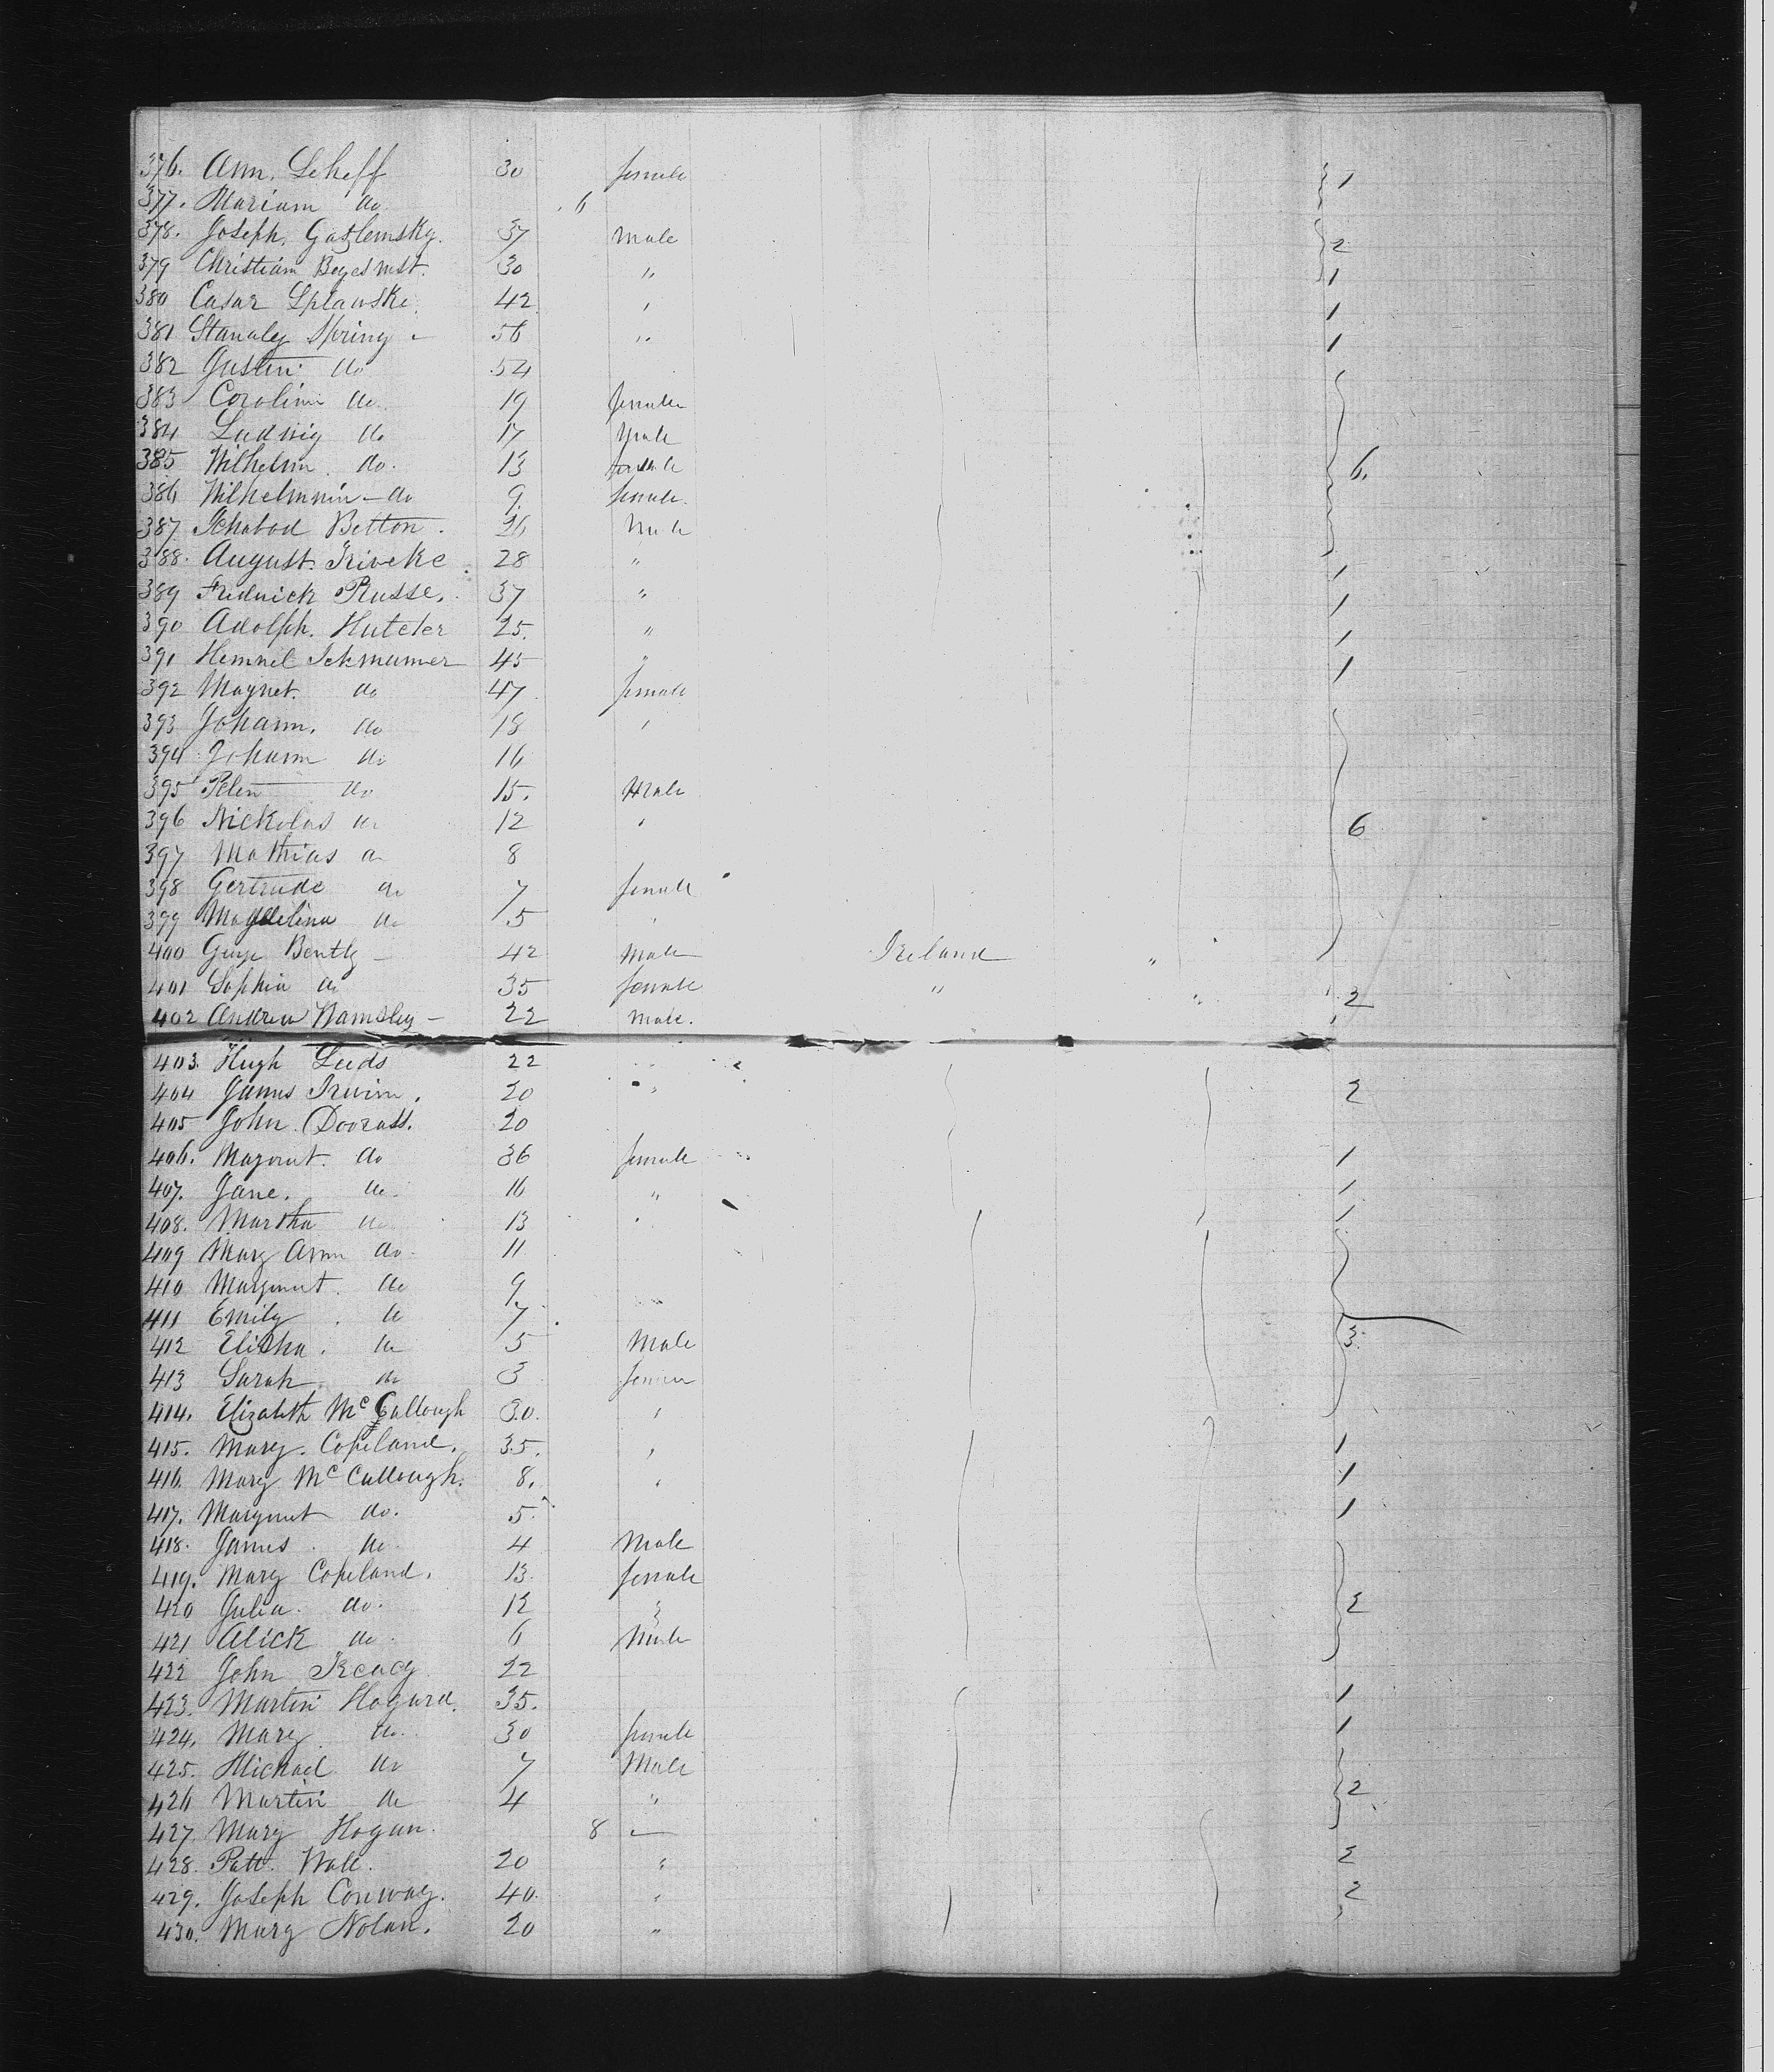 376. Ann. Leheff 30 female 1
377. Mariam do 6
378. Joseph. Gatzlemsky. 37 Male 2
379 Christian 30 " 1
380 Casar Splawske. 42 " 1
381 Stanaley Spring 56 " 1
382 Justin do 54
383 Corolin do. 19 female
384 Ludwig do 17 Male
385 Wilhelm. do. 13 6.
386 Wilhelmnin do 9. female.
387 Ichabod Betton. 26 Male
388. August. Triveke 28 " 1
389 Fredrick Russe. 37 " 1
390 Adolph. Huteter 25. " 1
391 Hemnel Ickmamer 45 " 1
392 Magnet. do 47 female
393 Johann. do 18 "
394 Johann do 16
395 Peter do 15. Male
396 Nickolas do 12 " 6
397 Mathias do 8
398 Gertrude do 7 female
399 Magdelina do 5 "
400 Bently 42 Male Ireland "
401 Sophia do 35 female " " 2
402 Andrew Wamsley 22 Male.
403. Hugh Leeds 22
404 James Irwin. 20 " 2
405 John. Dorrass. 20
406. Margaret. do 36 female 1
407. Jane. do. 16 " 1
408. Martha do 13 1
409 Mary Ann do. 11
410 Margaret. do 9
411 Emily. do 7
412 Elisha. do 5 Male 3.
413 Sarah. do 3 female
414. Elizabeth McCullough 30. "
415. Mary. Copeland. 35. " 1
416. Mary McCullough. 8. " 1
417. Margaret do. 5. 1
418. James. do. 4 Male
419. Mary Copeland. 13. female
420 Julia. do. 12 " 2
421 Alick do. 6 Male
422 John 22
423. Martin Hogard. 35. 1
424. Mary. do. 30 female 1
425. Michael do 7 Male
426 Martin do 4 " 2
427. Mary Hogan. 8
428. Patt. Wall. 20 " 2
429. Joseph Conway. 40. " 2
430. Mary Nolan. 20 "